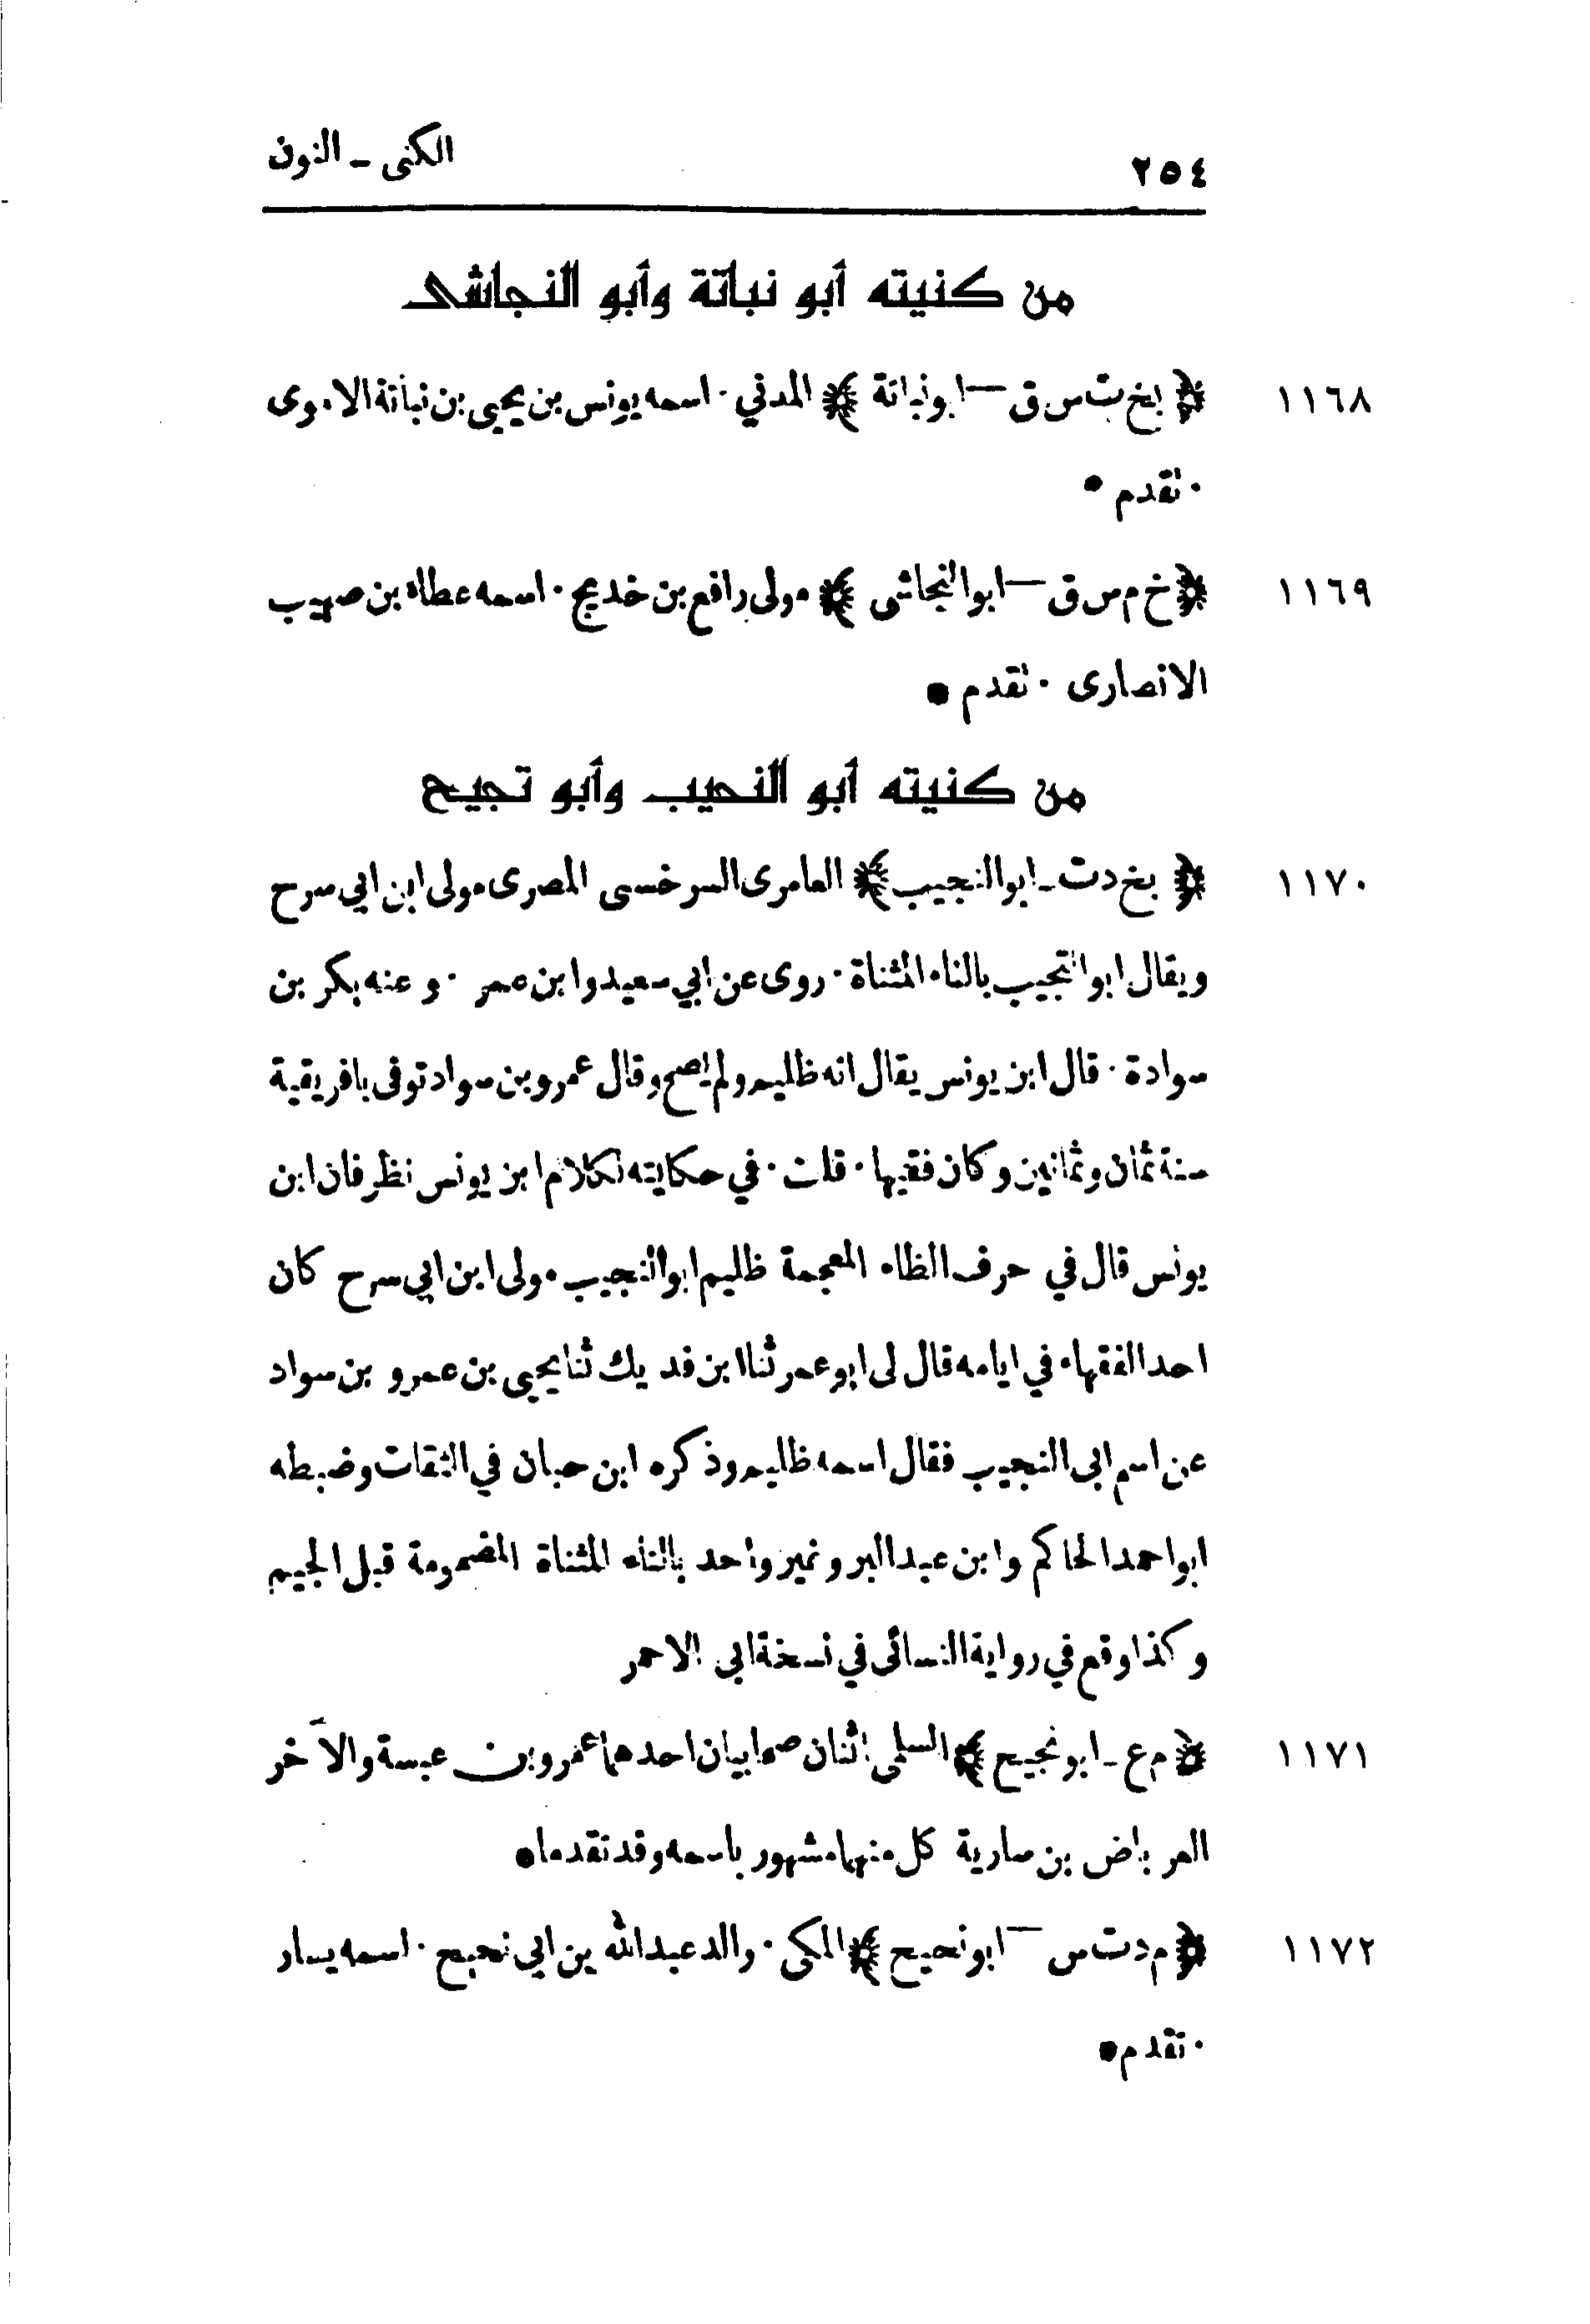 ٢٥٤
الكنى - النون
من كنيته أبو نباتة وأبو النجاشى
١١٦٨ ﴿ بخ ت س ق — ابو نباتة ﴾ المدني ٠ اسمه يونس بن يحيى بن نباتة الاموى
٠ تقدم •
١١٦٩ ﴿ خ م س ق — ابو النجاشى ﴾ مولى رافع بن خديج ٠ اسمه عطاء بن صهيب
الانصارى ٠ تقدم •
من كنيته أبو النحيب وأبو تجيح
١١٧٠ ﴿ بخ د ت - ابو النجيب ﴾ العامرى السرخسى المصرى مولى ابن ابي سرح
ويقال ابو التجيب بالتاء المثناة ٠ روى عن ابي سعيد وابن عمر ٠ وعنه بكر بن
سوادة ٠ قال ابن يونس يقال انه ظليم ولم يصح وقال عمرو بن سواد توفى بافريقية
سنة ثمان وثمانين وكان فقيها ٠ قلت ٠ في حكايته لكلام ابن يونس نظر فان ابن
يونس قال في حرف الظاء المعجمة ظليم ابو النجيب مولى ابن ابي سرح كان
احد الفقهاء في ايامه قال لى ابو عمر ثنا ابن فديك ثنا يحيى بن عمرو بن سواد
عن اسم ابى النجيب فقال اسمه ظليم وذكره ابن حبان في الثقات وضبطه
ابو احمد الحاكم وابن عبد البر ونمير واحد بالتاء المثناة المضمومة قبل الجيم
وكذا وقع في رواية النسائى في نسخة ابى الاحمر
١١٧١ ﴿ م ع - ابو نجيح ﴾ السلمى اثنان صحابيان احدهما عمرو بن عبسة والآخر
العرباض بن سارية كل منهما مشهور باسمه وقد تقدما •
١١٧٢ ﴿ م د ت س — ابو نحيح ﴾ المكى ٠ والد عبد الله بن ابي نجيح ٠ اسمه يسار
٠ تقدم •